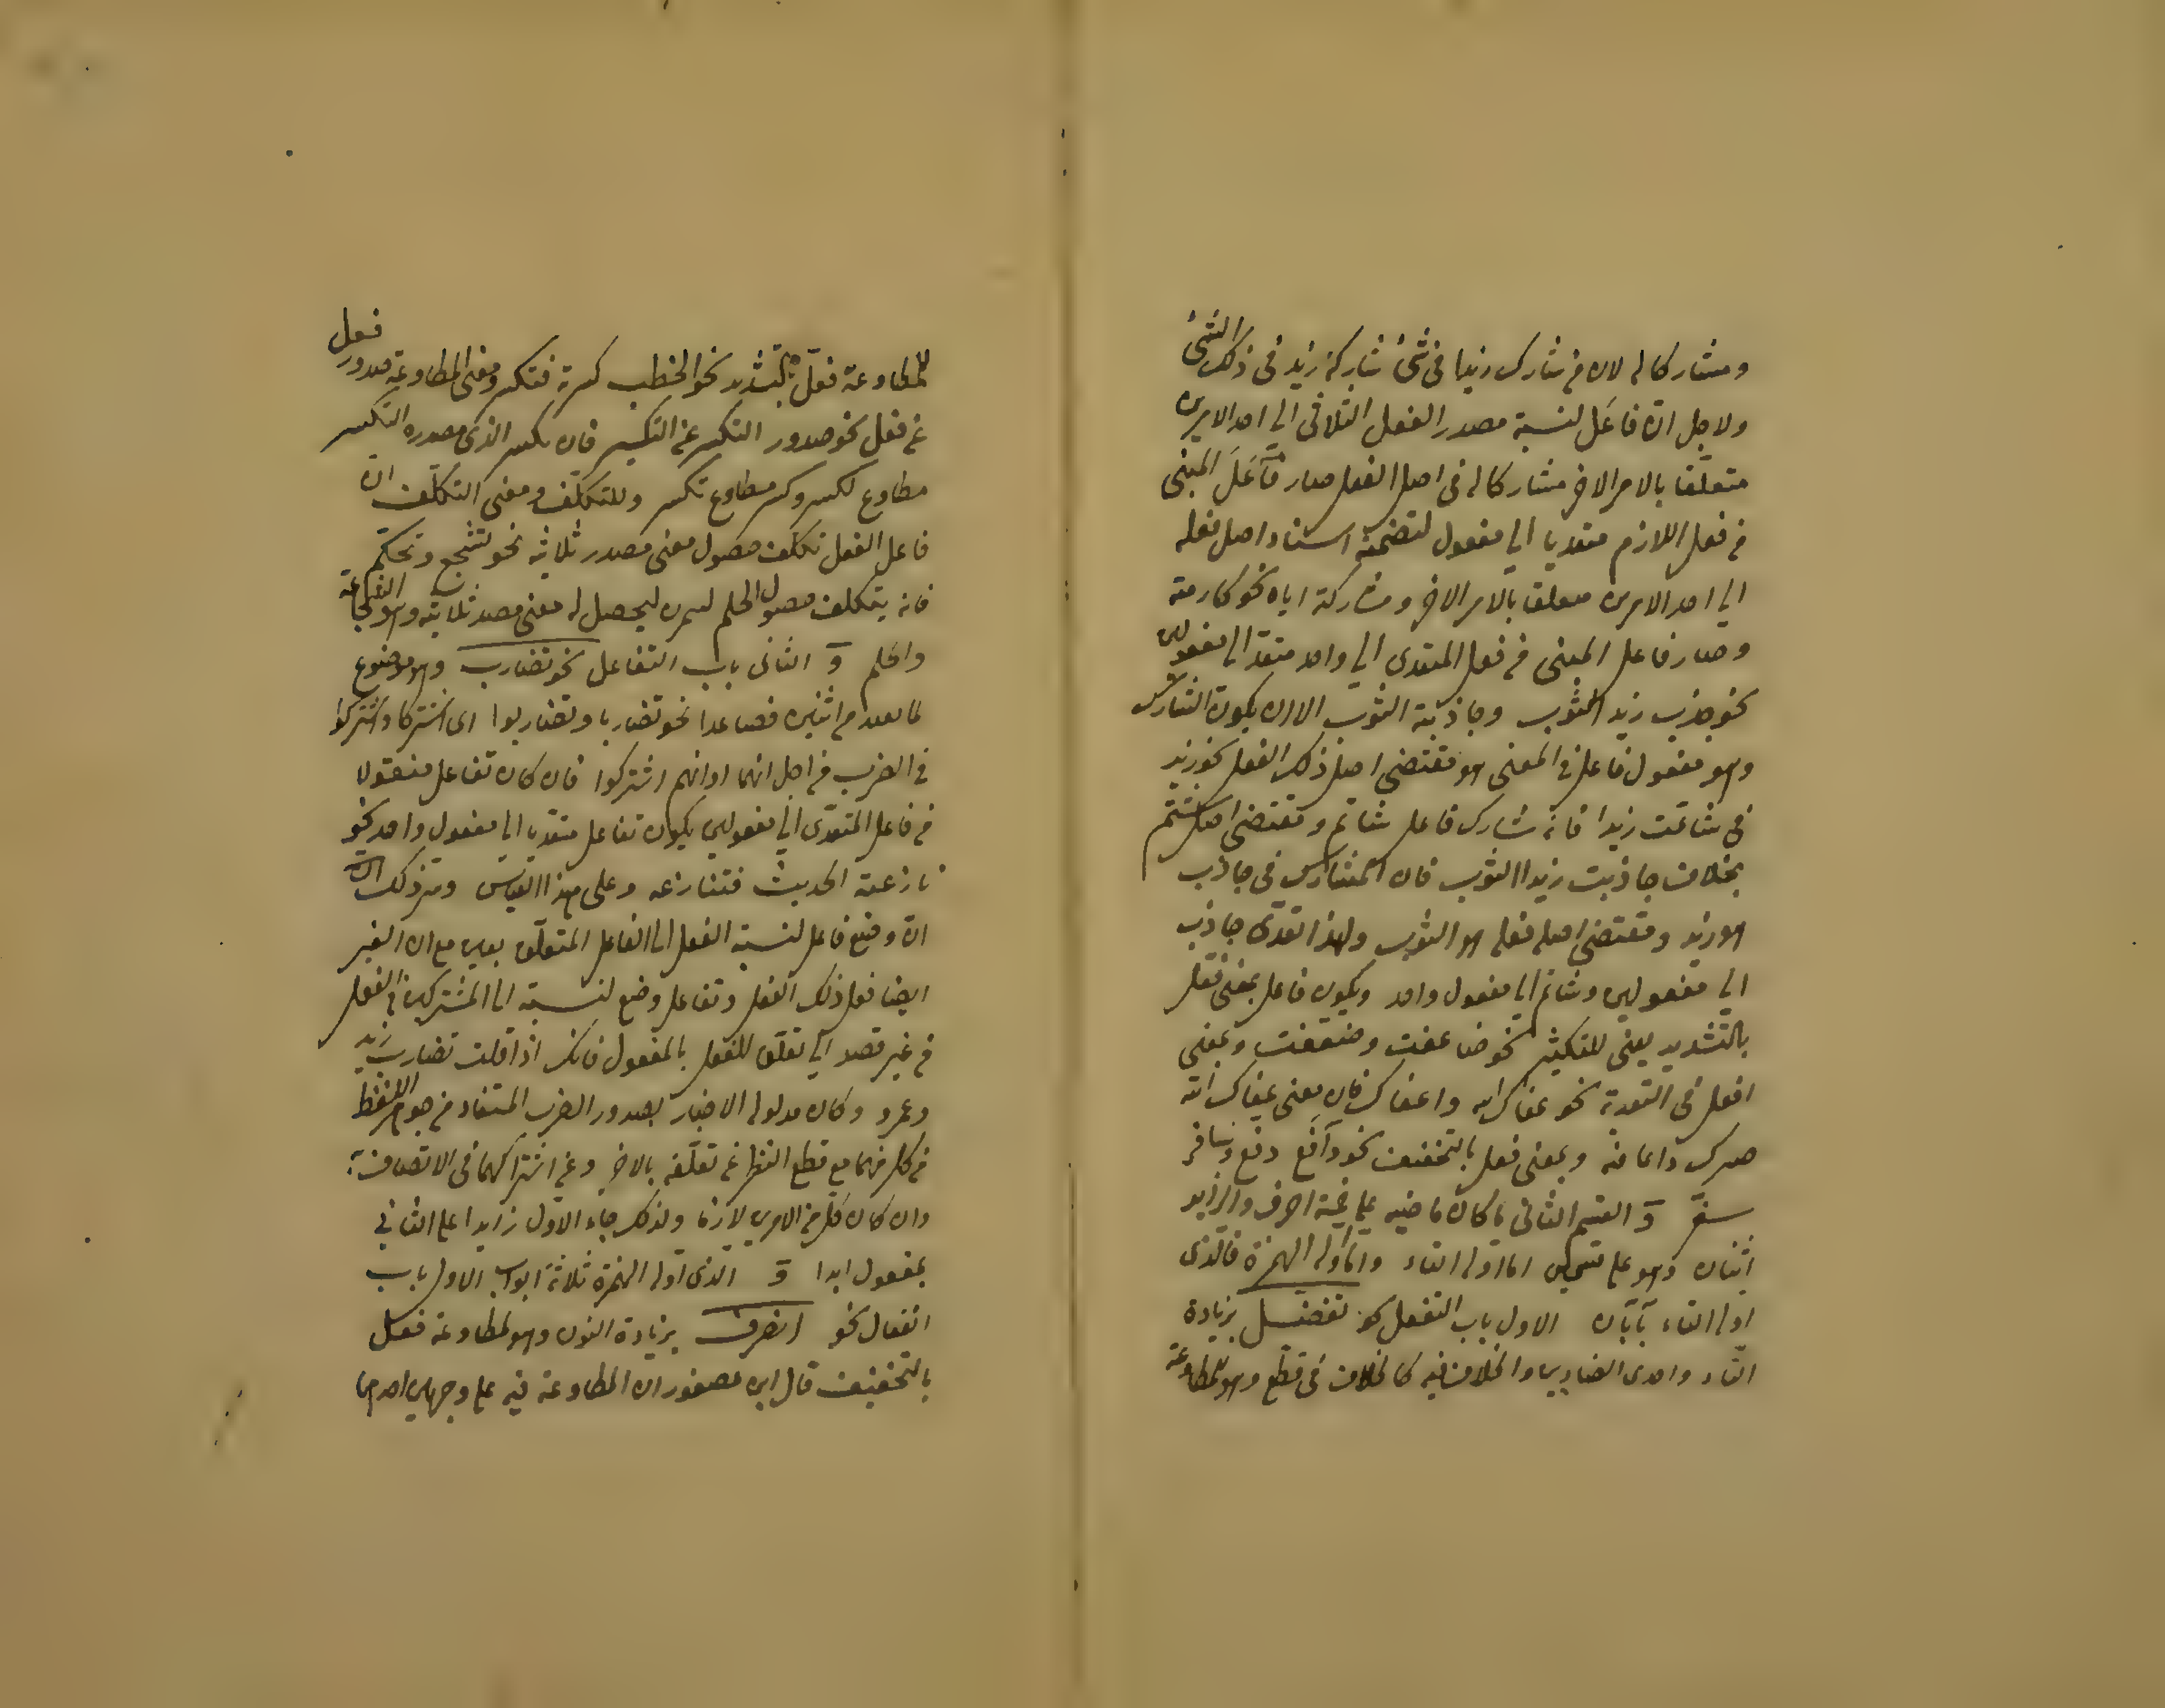 ومشاركا له لان من شارك زيدا فى شئ شاركه زيد فى ذلك الشئ
ولاجل ان فاعَل لنسبة مصدر الفعل الثلاثى الى احد الامرين
متعلّقا بالامر الاخر مشاركا له فى اصل الفعل صار فَاعَلَ المبنى
من فعل اللازم متعديا الى مفعول لتضمنه اسناد اصل فعله
الى احد الامرين متعلقا بالامر الاخر ومشاركة اياه نحو كارمته
وصار فاعل المبنى من فعل المتعدى الى واحد متعد الى مفعولين
نحو جذب زيد الثوب وجاذبته الثوب الا ان يكون المشارك
وهو مفعول فاعل فى المعنى هو مقتضى اصل ذلك الفعل نحو زيد
فى شاتمت زيدا فانه مشارك فاعل شاتم ومقتضى اصل شتم
بخلاف جاذبت زيدا الثوب فان المشارك فى جاذب
هو زيد ومقتضى اصله فعله هو الثوب ولهذا تعدى جاذب
الى مفعولين وشاتم الى مفعول واحد ويكون فاعل بمعنى فعّل
بالتشديد يعنى للتكثير نحو ضاعفت وضعّفت وبمعنى
افعل فى التعدية نحو عافاك الله واعفاك فان معنى عفاك الله
صيرك ذا عافية وبمعنى فعل بالتخفيف نحو دافَع دفع وسافر
سفر وَ القسم الثانى ما كان ماضيه على خمسة احرف والزايد
اثنان وهو على قسمين اما اوله التاء واما اوله الهمزة فالذى
اوله التاء بابان الاول باب التفعل نحو تفضّل بزيادة
التاء واحدى الضادين والخلاف فيه كالخلاف فى قطّع وهو للمطاوعة
للمطاوعة فعّل بالتشديد نحو الخطب كسرته فتكسر ومعنى المطاوعة صدور فعل
عن فعل نحو صدور التكسر عن التكسير فان تكسر الذى مصدره التكسر
مطاوع لكسر وكسر مطاوع تكسر وللتكلف ومعنى التكلّف ان
فاعل الفعل تكلف حصول معنى مصدر ثلاثيه نحو تشجع وتحلّم
فانه يتكلف حصول الحلم ليحصل له معنى مصدر ثلاثيه وهو الشجاعة
والحلم وَ الثانى باب التفاعل نحو تضارب وهو موضوع
لما يصدر من اثنين فصاعدا نحو تضاربا وتضاربوا اى اشتركا واشتركوا
فى الضرب من اجل انهما او انهم اشتركوا فان كان تفاعل منقولا
من فاعل المتعدّى الى مفعولين يكون تفاعل متعديا الى مفعول واحد نحو
نازعته الحديث فتنازعه وعلى هذا القياس وسر ذلك
ان وضع فاعل لنسبة الفعل الى الفاعل المتعلّق بغيره مع ان الغير
ايضا فعل ذلك الفعل وتفاعل وضع لنسبته الى المشتركين فى الفعل
من غير قصد الى تعلّق للفعل بالمفعول فانك اذا قلت تضارب زيد
وعمرو وكان مدلوله الاخبار بصدور الضرب المستفاد من جوهر اللفظ
من كل منهما مع قطع النظر عن تعلّقه بالاخر وعن اشتراكهما فى الاتصاف به
وان كان كل من الامرين لازما ولذلك جاء الاول زايدا على الثانى
بمفعول ابدا وَ الذى اوله الهمزة ثلاثة ابواب الاول باب
انفعال نحو انصرف بزيادة النون وهو لمطاوعة فعل
بالتخفيف قال ابن عصفور ان المطاوعة فيه على وجهين احدهما